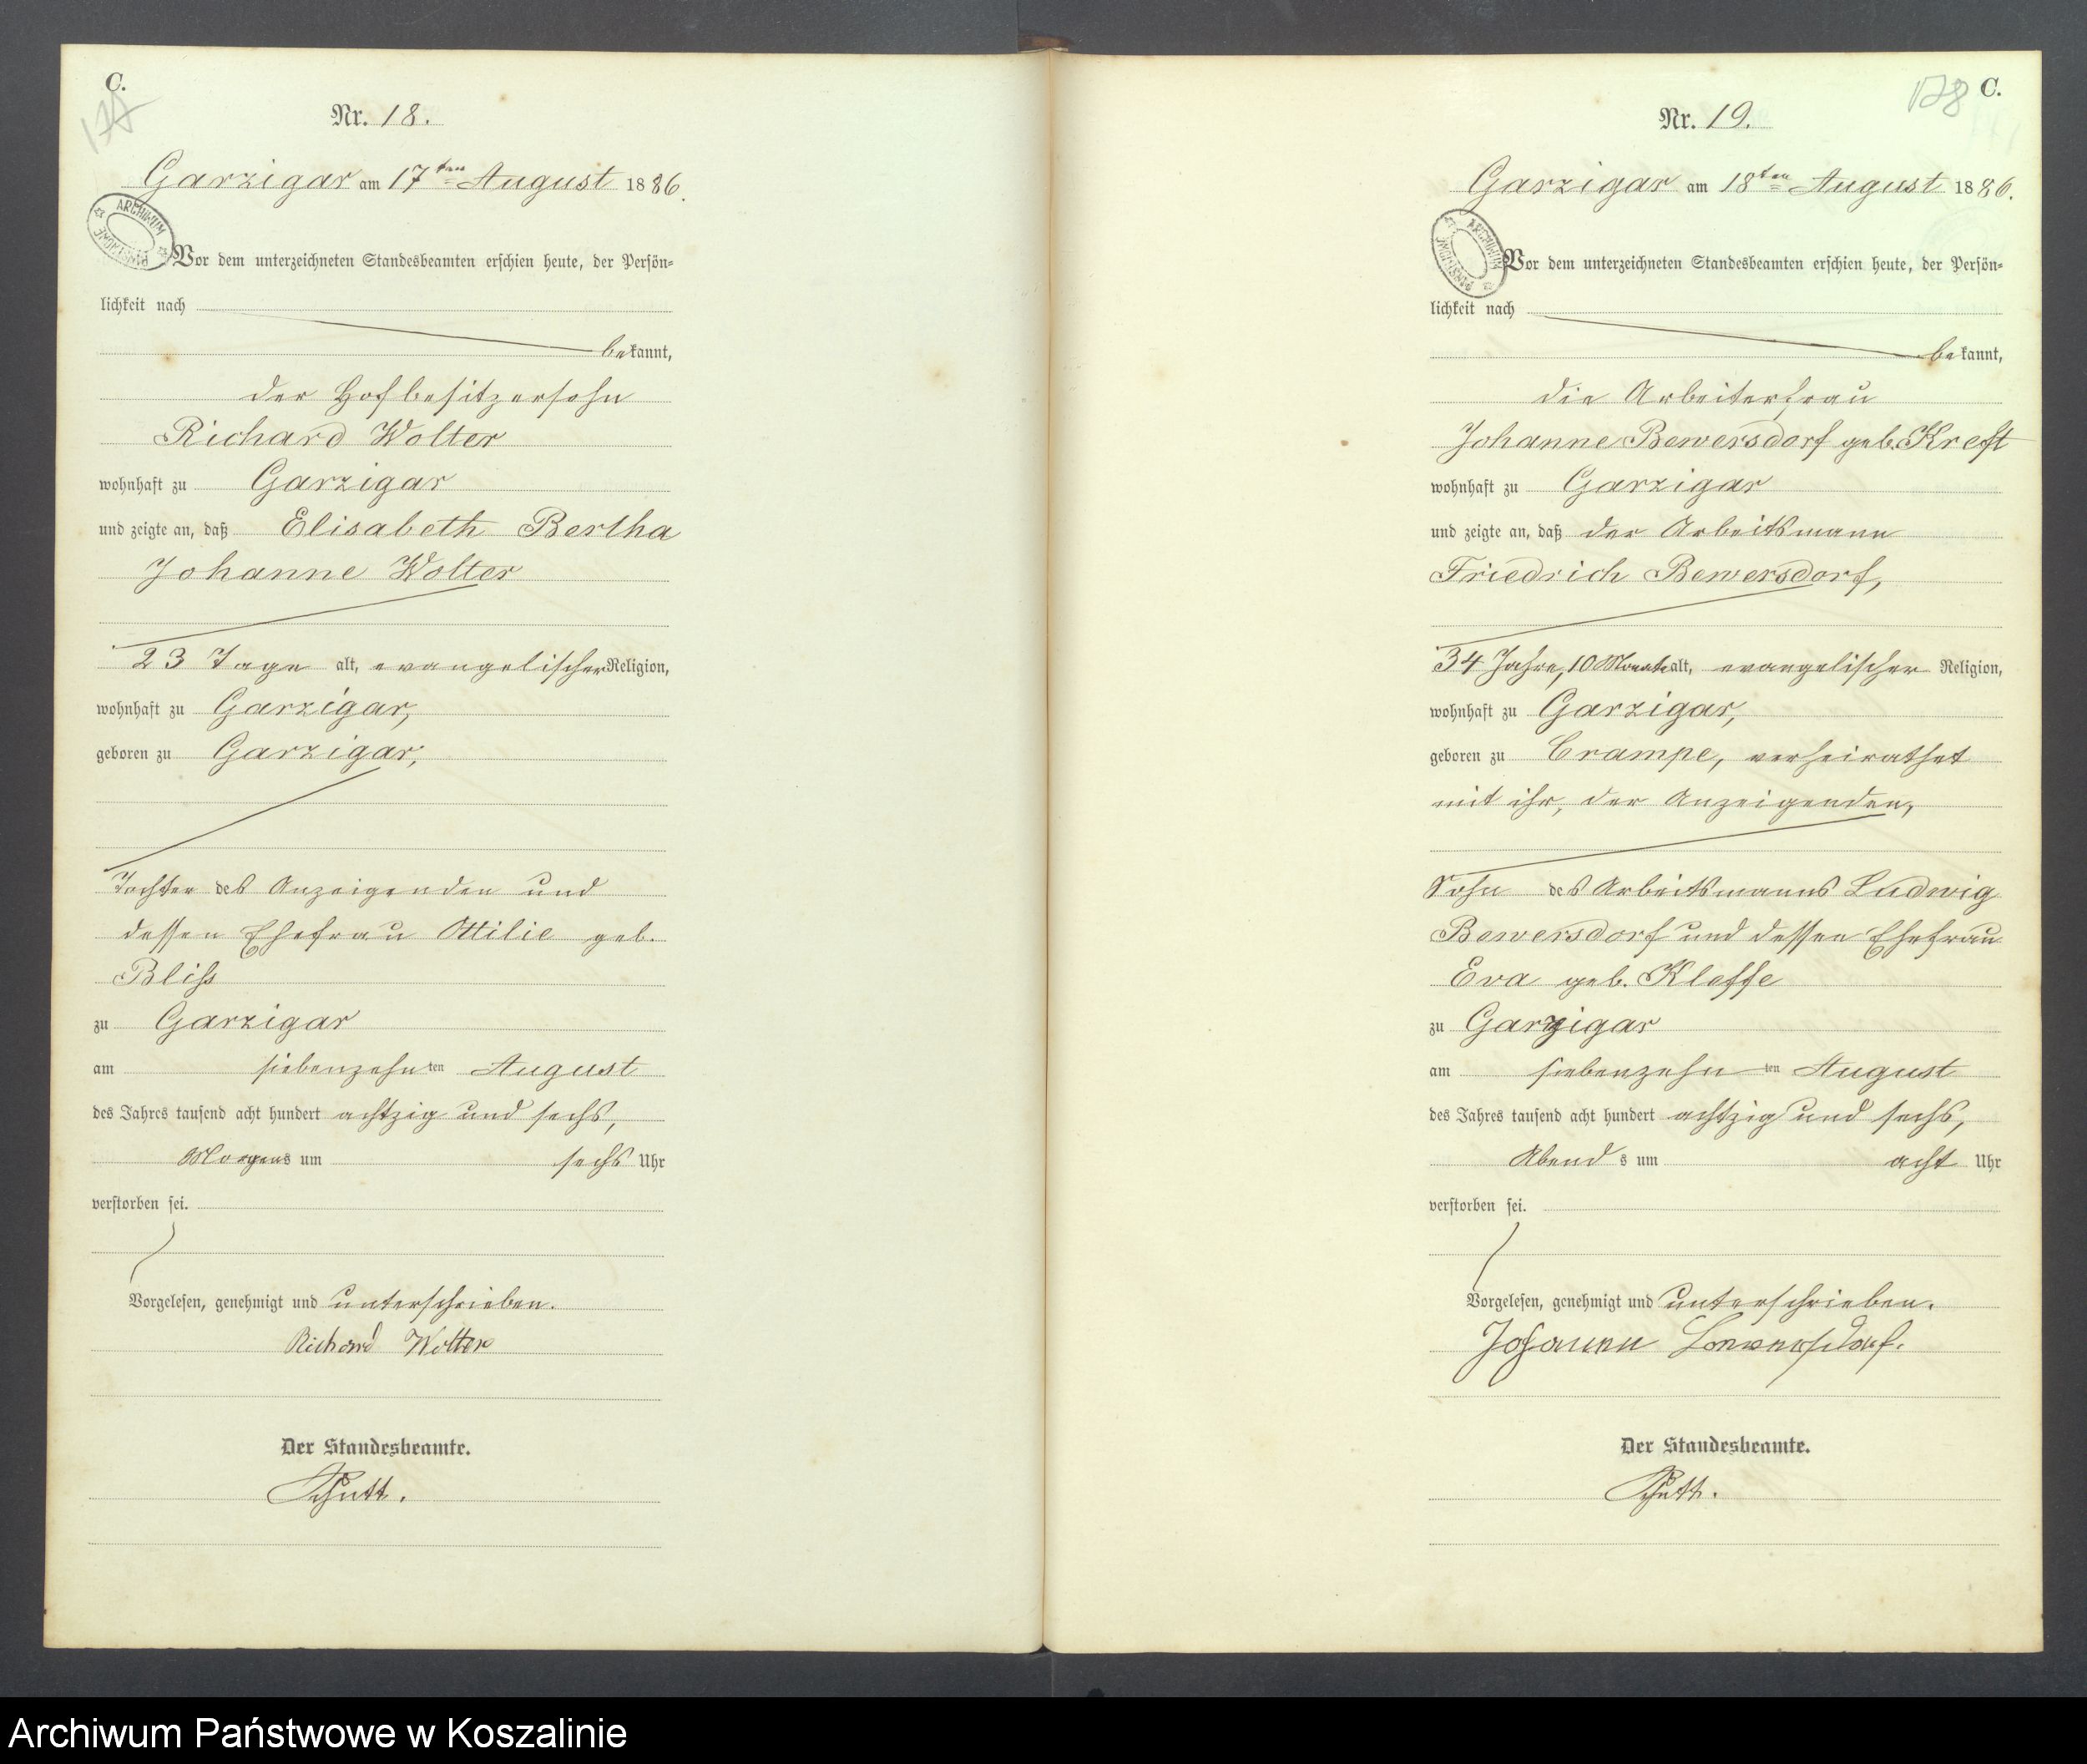 C.
Nr. 18.
Garzigar am 17ten August 1886.
ARCHIWUM PAŃSTWOWE
Vor dem unterzeichneten Standesbeamten erschien heute, der Persön=
lichkeit nach
bekannt,
der Hofbesitzersohn
Richard Wolter
wohnhaft zu Garzigar
und zeigte an, daß Elisabeth Bertha
Johanne Wolter
23 Tage alt, evangelischer Religion,
wohnhaft zu Garzigar,
geboren zu Garzigar,
Tochter des Anzeigenden und
dessen Ehefrau Ottilie geb.
Bliß
zu Garzigar
am siebenzehnten August
des Jahres tausend acht hundert achtzig und sechs,
Morgens um sechs Uhr
verstorben sei.
Vorgelesen, genehmigt und unterschrieben.
Richard Wolter
Der Standesbeamte.
178 C.
Nr. 19.
Garzigar am 18ten August 1886.
ARCHIWUM PAŃSTWOWE
Vor dem unterzeichneten Standesbeamten erschien heute, der Persön=
lichkeit nach
bekannt,
die Arbeiterfrau
Johanne Bewersdorf geb. Kreft
wohnhaft zu Garzigar
und zeigte an, daß der Arbeitsmann
Friedrich Bewersdorf,
34 Jahre, 10 Monate alt, evangelischer Religion,
wohnhaft zu Garzigar,
geboren zu Crampe, verheirathet
mit ihr, der Anzeigenden,
Sohn des Arbeitsmanns Ludwig
Bewersdorf und dessen Ehefrau
Eva geb. Kleffe
zu Garzigar
am siebenzehnten August
des Jahres tausend acht hundert achtzig und sechs,
Abends um acht Uhr
verstorben sei.
Vorgelesen, genehmigt und unterschrieben.
Johanne Bewersdorf.
Der Standesbeamte.
Archiwum Państwowe w Koszalinie